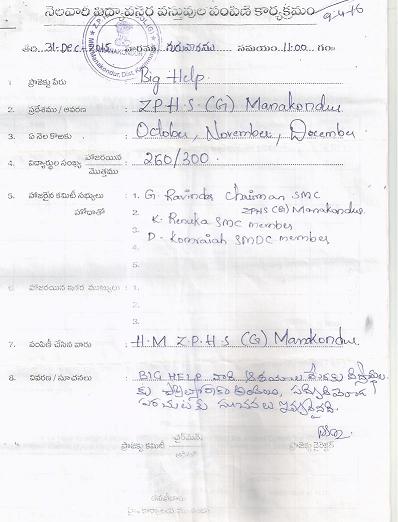 నెలవారీ విద్యావసర వస్తువుల పంపిణీ కార్యక్రమం
తేది. 31-DEC-2015 వారము గురువారము సమయం. 11:00 గం
1. ప్రాజెక్టు పేరు : Big Help.
2. ప్రదేశము / ఆవరణ : Z.P.H.S (G) Manakondur
3. ఏ నెల కొఱకు : October, November, December.
4. విద్యార్థుల సంఖ్య హాజరయిన మొత్తము : 260/300.
5. హాజరైన కమిటీ సభ్యులు హోదాతో : 1. G. Ravinder Chairman SMC
ZPHS (G) Manakondur
2. K. Renuka SMC member
3. D. Komraiah SMDC member
4.
5.
6. హాజరయిన ఇతర ముఖ్యులు : 1.
2.
3.
7. పంపిణీ చేసిన వారు : H.M Z.P.H.S (G) Manakondur
8. వివరణ / సూచనలు : BIG HELP వారి
ప్రాజెక్టు కమిటీ ఛైర్‌మెన్ ప్రాజెక్టు డైరెక్టర్